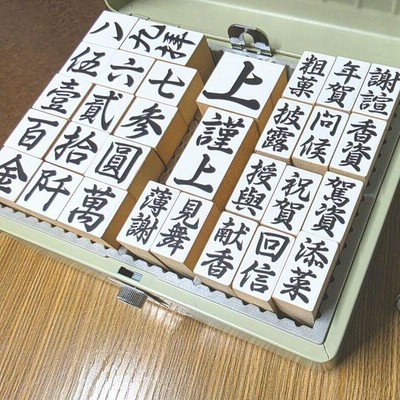 八 九
伍 六 七
壹 貳 参
百 拾 圓
金 阡 萬
上
謹上
薄謝 見舞
粗菓 年賀 謝誼
披露 問候 香資
授與 祝賀 駕資
献香 回信 添菜